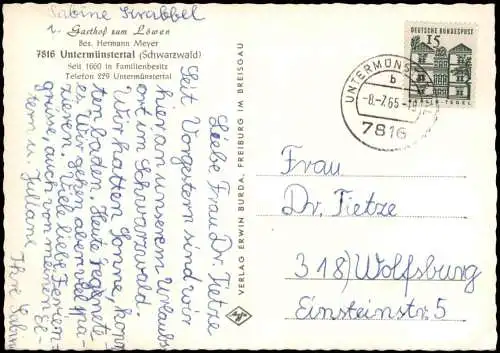 Sabine Krabbel
z. Gasthof zum Löwen
Bes. Hermann Meyer
7816 Untermünstertal (Schwarzwald)
Seit 1660 in Familienbesitz
Telefon 229 Untermünstertal
Liebe Frau Dr. Tietze
Seit Vorgestern sind wir
hier an unserem Urlaubs-
ort im Schwarzwald.
Wir hatten Sonne, konn
ten baden. Heute regnete
es. Wir gehen aber viel spa-
zieren. Viele liebe Ferien-
grüsse, auch von meinen El-
tern u. Juliane
Ihre Sabine
VERLAG ERWIN BURDA, FREIBURG IM BREISGAU
Agfa
DEUTSCHE BUNDESPOST
15
BERLIN-TEGEL
UNTERMÜNSTERTAL
b
-8.-7.65-18
7816
Frau
Dr. Tietze
318) Wolfsburg
Einsteinstr. 5